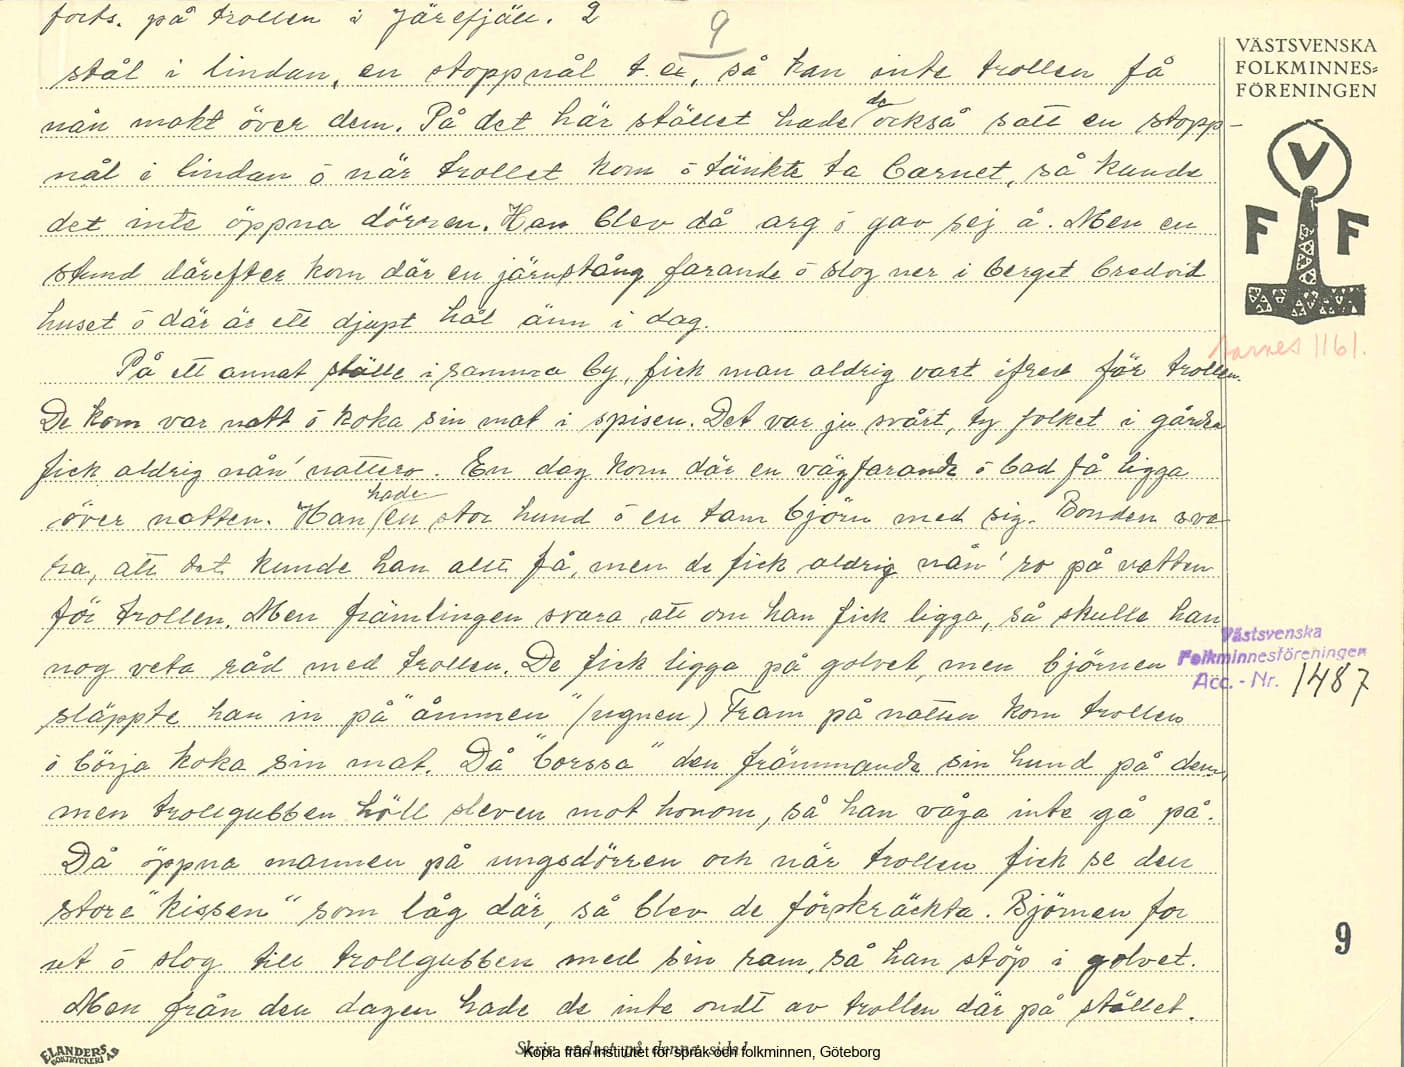 forts. på trollen i Järefjäll. 2
9
stål i lindan, en stoppnål t. ex, så kan inte trollen få
nån makt över dem. På det här stället hade de också satt en stopp-
nål i lindan ō när trollet kom ō tänkte ta barnet, så kunde
det inte öppna dörren. Han blev då arg ō gav sej å. Men en
stund därefter kom där en järnstång farande ō slog ner i berget bredvid
huset ō där är ett djupt hål änn i dag.
På ett annat ställe i samma by, fick man aldrig vart ifred för trollen.
De kom var natt ō koka sin mat i spisen. Det var ju svårt, ty folket i gården
fick aldrig nån' nattero. En dag kom där en vägfarande ō bad få ligga
över natten. Han hade en stor hund ō en tam björn med sig. Bonden sva
ra, att det kunde han allt få, men de fick aldrig nån' ro på natten
för trollen. Men främlingen svara att om han fick ligga, så skulle han
nog veta råd med trollen. De fick ligga på golvet, men björnen
släppte han in på "åmmen" (ugnen) Fram på natten kom trollen
ō börja koka sin mat. Då "borssa" den främmande sin hund på dem,
men trollgubben höll sleven mot honom, så han våga inte gå på.
Då öppna mannen på ungsdörren och när trollen fick se den
store "kissen" som låg där, så blev de förskräckta. Björnen for
ut ō slog till trollgubben med sin ram, så han stöp i golvet.
Men från den dagen hade de inte ondt av trollen där på stället.
VÄSTSVENSKA
FOLKMINNES=
FÖRENINGEN
V
F F
Aarnes 1161.
Västsvenska
Folkminnesföreningen
Acc. - Nr. 1487
9
ELANDERS
BOKTRYCKERI AB
Skriv endast på denna sida!
Kopia från Institutet för språk och folkminnen, Göteborg